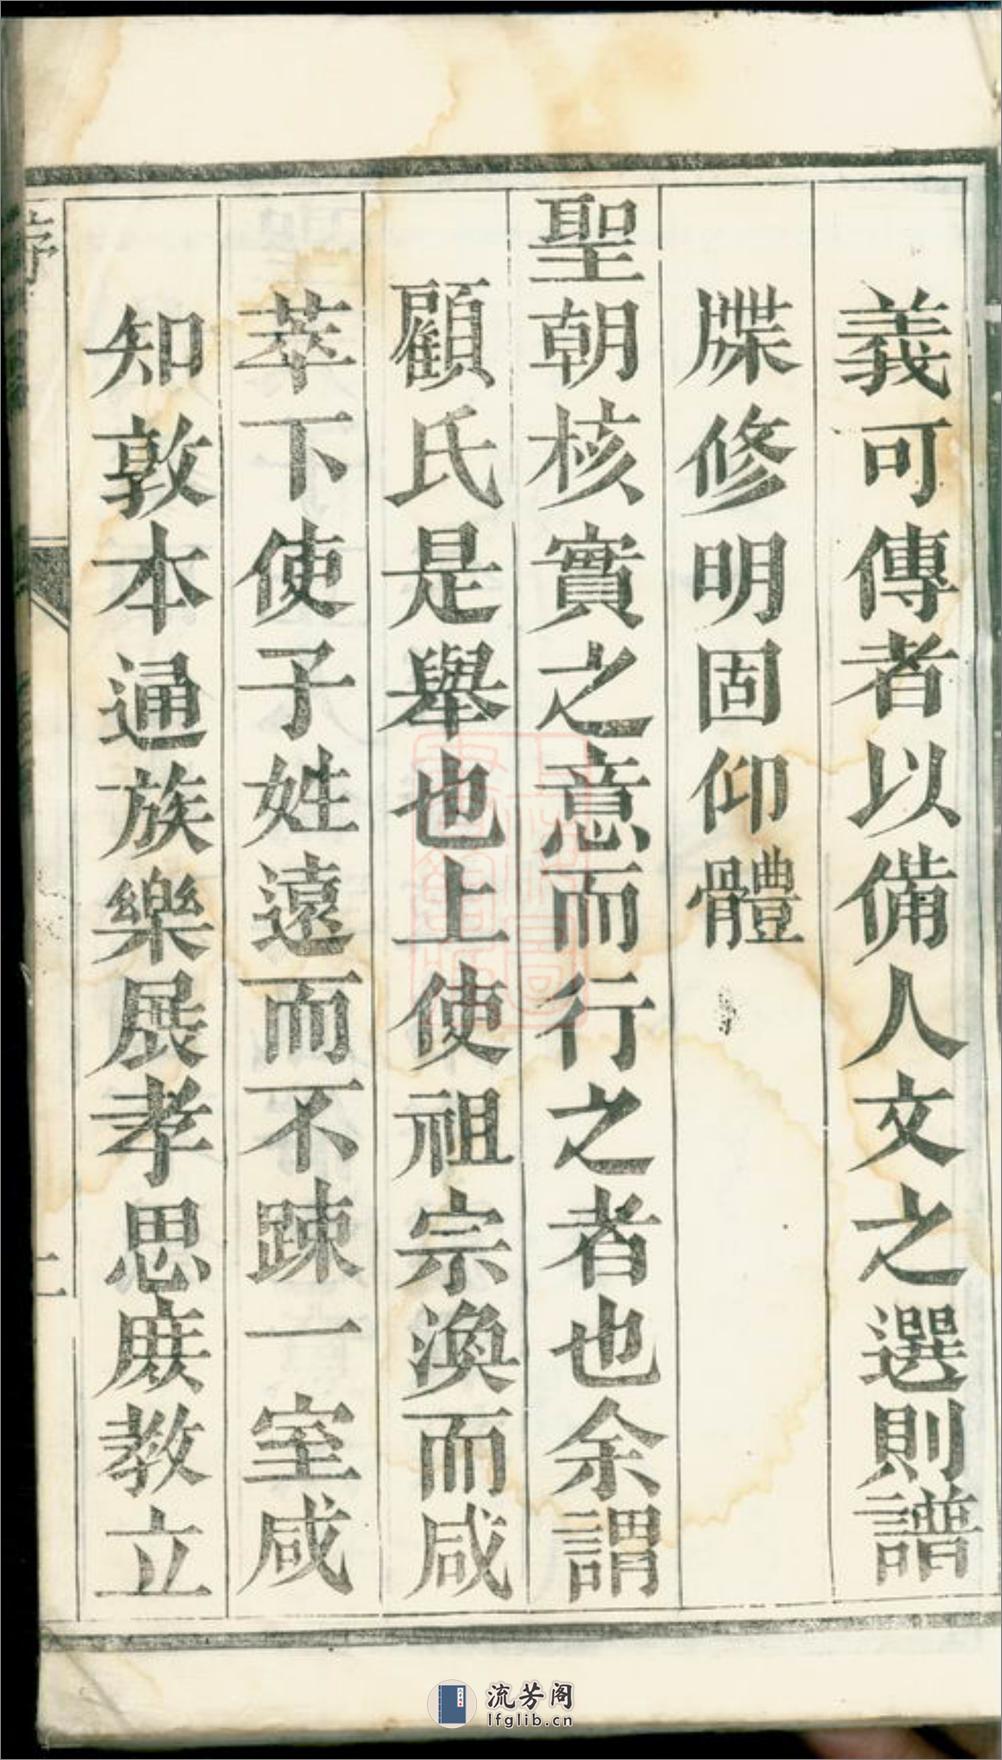 義可傳者以備人文之選則譜
牒修明固仰體
聖朝核實之意而行之者也余謂
顧氏是舉也上使祖宗渙而咸
萃下使子姓遠而不踈一室咸
知敦本通族樂展孝思庻教立
序
二
流芳阁
lfglib.cn